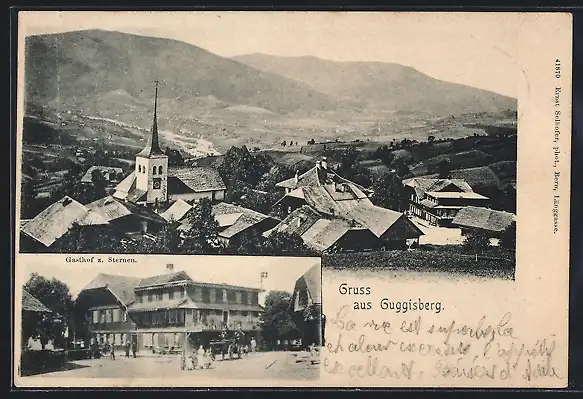 Gasthof z. Sternen.
Gruss
aus Guggisberg.
41870 Ernst Selhofer, phot., Bern, Länggasse.
La vue est superbe, la
chaleur excessive, l'appétit
excellent,